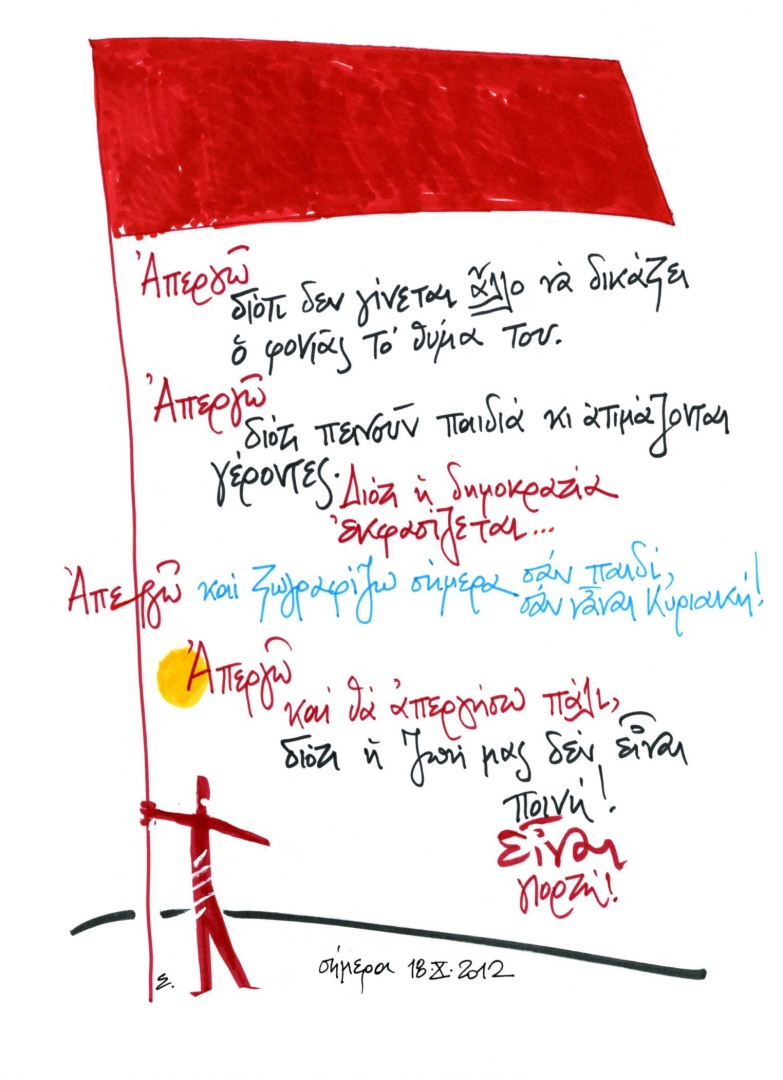 Ἀπεργῶ
διότι δεν γίνεται ἄλλο νὰ δικάζει
ὁ φονιᾶς τὸ θύμα του.
Ἀπεργῶ
διότι πεινοῦν παιδιά κι ἀτιμάζονται
γέροντες. Διότι ἡ δημοκρατία
ἐκφασίζεται...
Ἀπεργῶ καὶ ζωγραφίζω σήμερα σάν παιδί,
σάν νἆναι Κυριακή!
Ἀπεργῶ
καὶ θὰ ἀπεργήσω πάλι,
διότι ἡ ζωή μας δέν εἶναι
ποινή!
εἶναι
γιορτή!
σήμερα 18·Χ·2012
Σ.